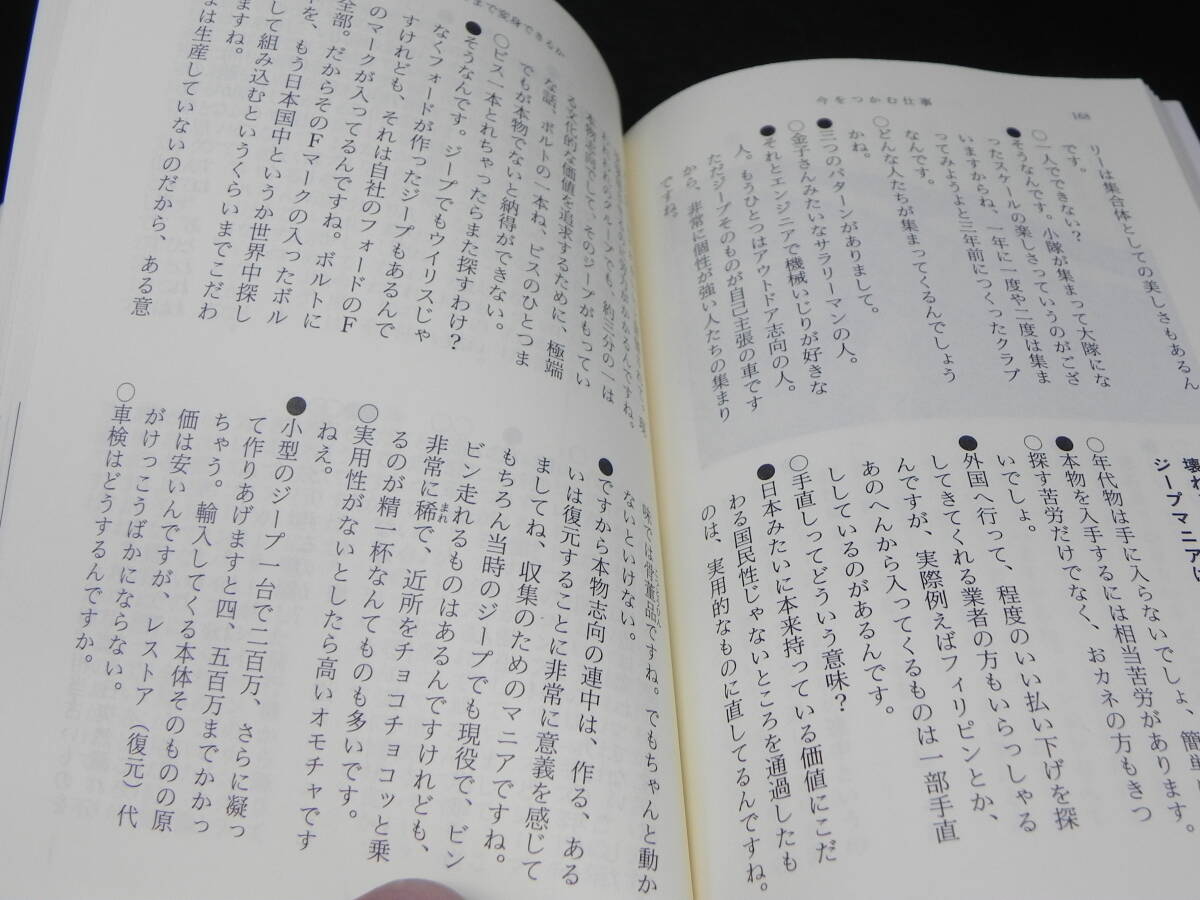 168
今をつかむ仕事
リーは集合体としての美しさもあるん
です。
○一人でできない？
●そうなんです。小隊が集まって大隊にな
ったスケールの楽しさっていうのがござ
いますからね、一年に一度や二度は集ま
ってみようよと三年前につくったクラブ
なんです。
○どんな人たちが集まってくるんでしょう
かね。
●三つのパターンがありまして。
○金子さんみたいなサラリーマンの人。
●それとエンジニアで機械いじりが好きな
人。もうひとつはアウトドア志向の人。
ただジープそのものが自己主張の車です
から、非常に個性が強い人たちの集まり
ですね。
ジープマニア
○年代物は手に入らないでしょ、簡単
●本物を入手するには相当苦労があります。
○探す苦労だけでなく、おカネの方もきつ
いでしょ。
●外国へ行って、程度のいい払い下げを探
してきてくれる業者の方もいらっしゃる
んですが、実際例えばフィリピンとか、
あのへんから入ってくるものは一部手直
ししているのがあるんです。
○手直しってどういう意味？
●日本みたいに本来持っている価値にこだ
わる国民性じゃないところを通過したも
のは、実用的なものに直してるんですね。
まで変身できるか
われわれのグループでも、約三分の一は
本物志向でして、そのジープがもってい
る文化的な価値を追求するために、極端
な話、ボルトの一本ね、ビスのひとつま
でもが本物でないと納得ができない。
○ビス一本とれちゃったらまた探すわけ？
●そうなんです。ジープでもウイリスじゃ
なくフォードが作ったジープもあるんで
すけれども、それは自社のフォードのF
のマークが入ってるんですね。ボルトに
全部。だからそのFマークの入ったボル
トを、もう日本国中というか世界中探し
して組み込むというくらいまでこだわ
ますね。
は生産していないのだから、ある意
味では骨董品ですね。でもちゃんと動か
ないといけない。
●ですから本物志向の連中は、作る、ある
いは復元することに非常に意義を感じて
ましてね、収集のためのマニアですね。
もちろん当時のジープでも現役で、ビン
ビン走れるものはあるんですけれども、
非常に稀で、近所をチョコチョコッと乗
るのが精一杯なんてものも多いです。
○実用性がないとしたら高いオモチャです
ねえ。
●小型のジープ一台で二百万、さらに凝っ
て作りあげますと四、五百万までかかっ
ちゃう。輸入してくる本体そのものの原
価は安いんですが、レストア（復元）代
がけっこうばかにならない。
○車検はどうするんですか。